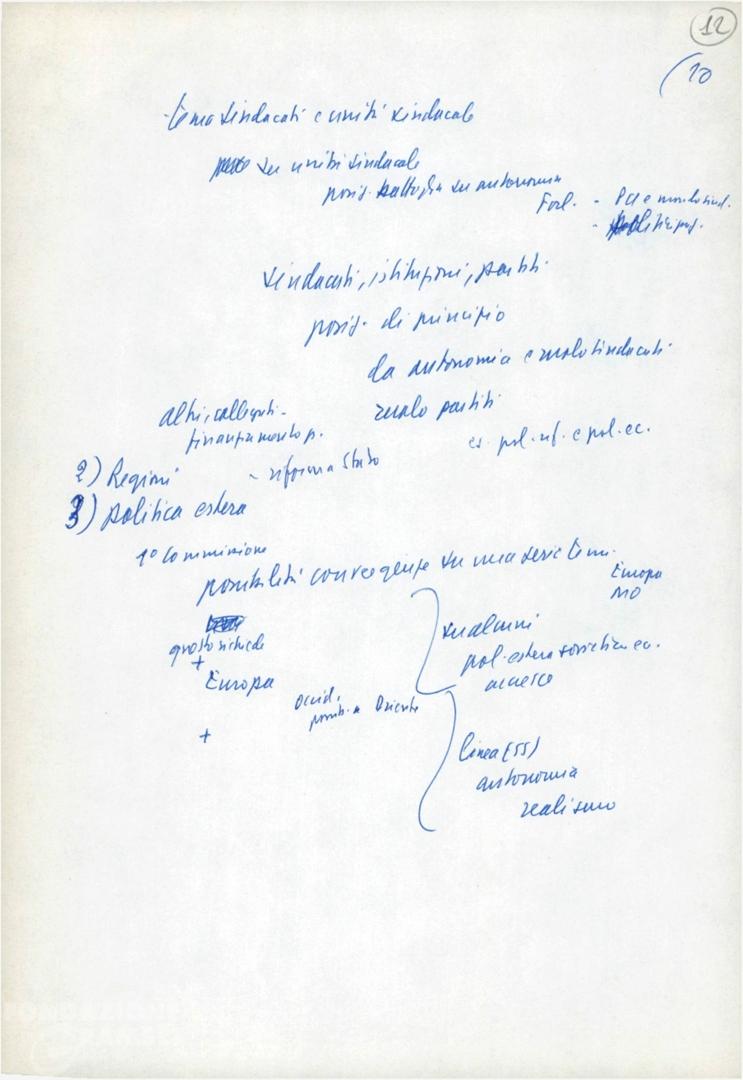 12
10
tema sindacati e unità sindacale
su unità sindacale
posiz. battaglia su autonomia
Forl. - PCI e mondo sind.
sindacati, istituzioni, partiti
posiz. di principio
da autonomia e ruolo sindacati
ruolo partiti
altri, collegati -
finanziamento p.
es. pol. rif. e pol. ec.
2) Regioni - riforma Stato
3) politica estera
1° Commissione
possibilità convergenze su una serie temi
Europa
MO
questo richiede
+
Europa
Occid.
possib. a Oriente
+
su alcuni
pol. estera sovietica ec.
linea (SS)
autonomia
realismo